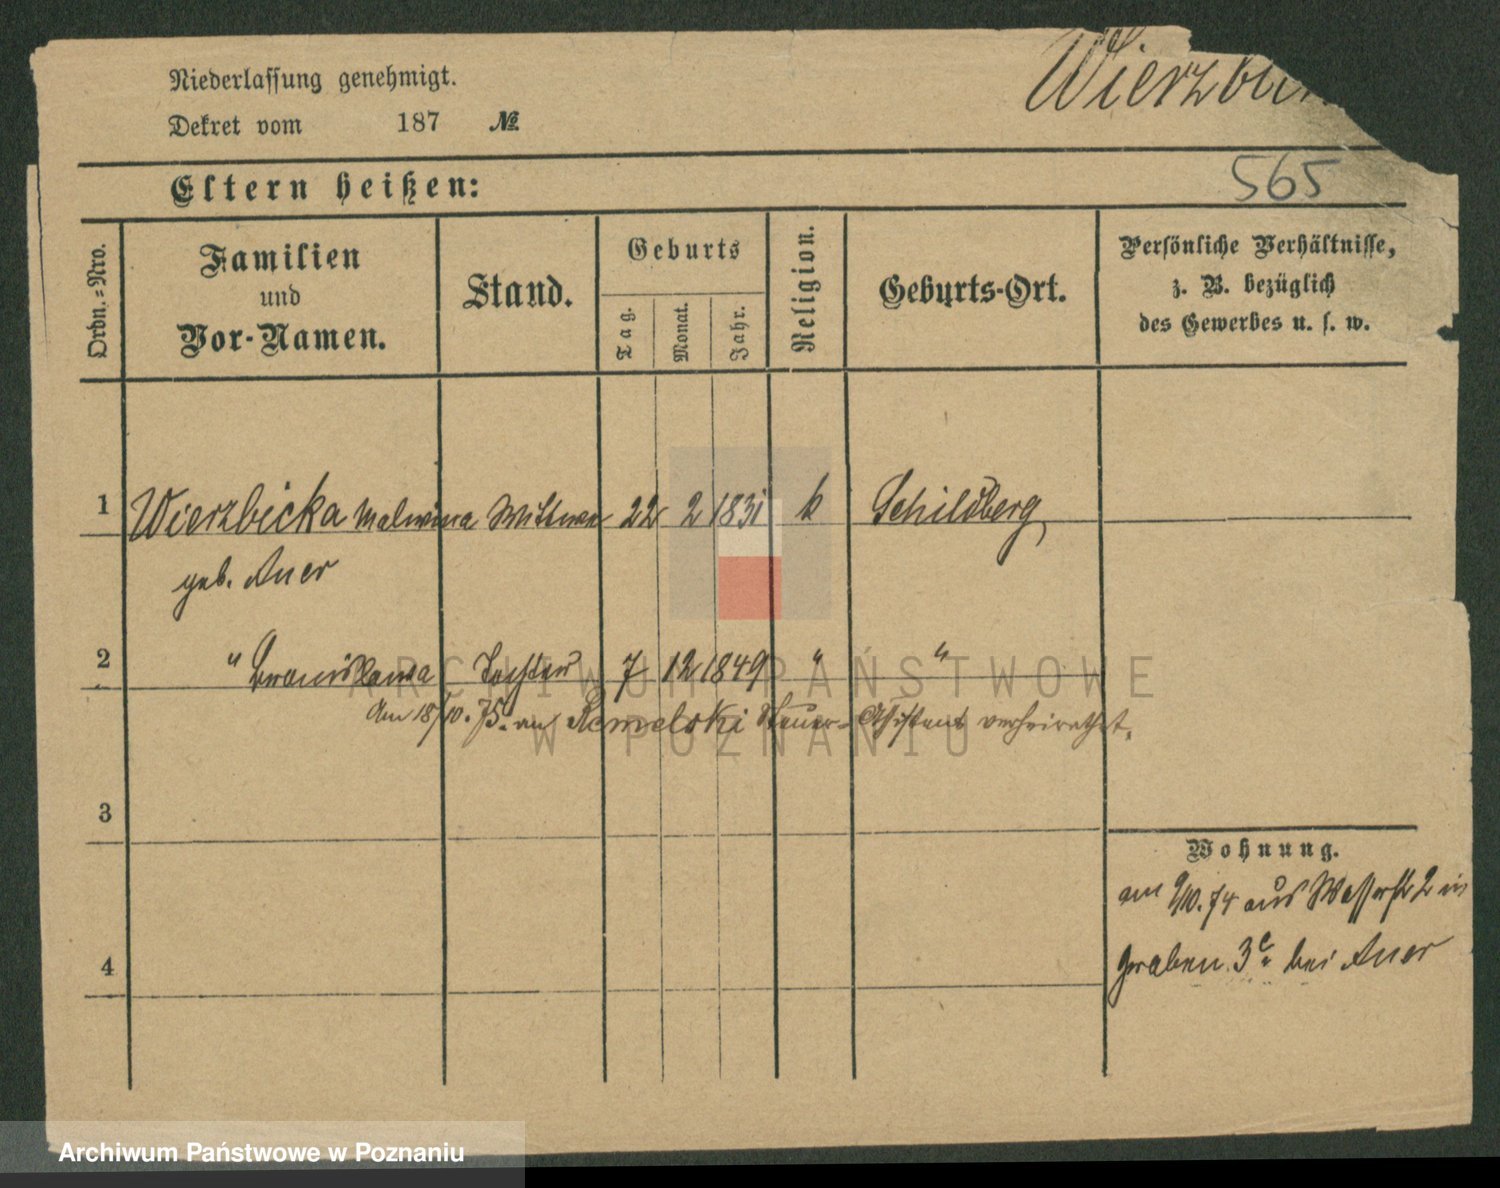 Niederlassung genehmigt.
Dekret vom 187 №
Wierzbi
565
Eltern heißen:
Ordn.=Nro.
Familien
und
Vor-Namen.
Stand.
Geburts
Tag.
Monat.
Jahr.
Religion.
Geburts-Ort.
Persönliche Verhältnisse,
z. B. bezüglich
des Gewerbes u. s. w.
1 Wierzbicka Malwina Wittwe 22 2 1831 k Schildberg
geb. Auer
2 " Bronislawa Tochter 7 12 1849 " "
Am 18/10. 75. an Steuer-Assistent verheirathet.
3
4
Wohnung.
am 9/10. 74 aus Wasserstr 2 in
Graben 3c. bei Auer
ARCHIWUM PAŃSTWOWE
W POZNANIU
Archiwum Państwowe w Poznaniu